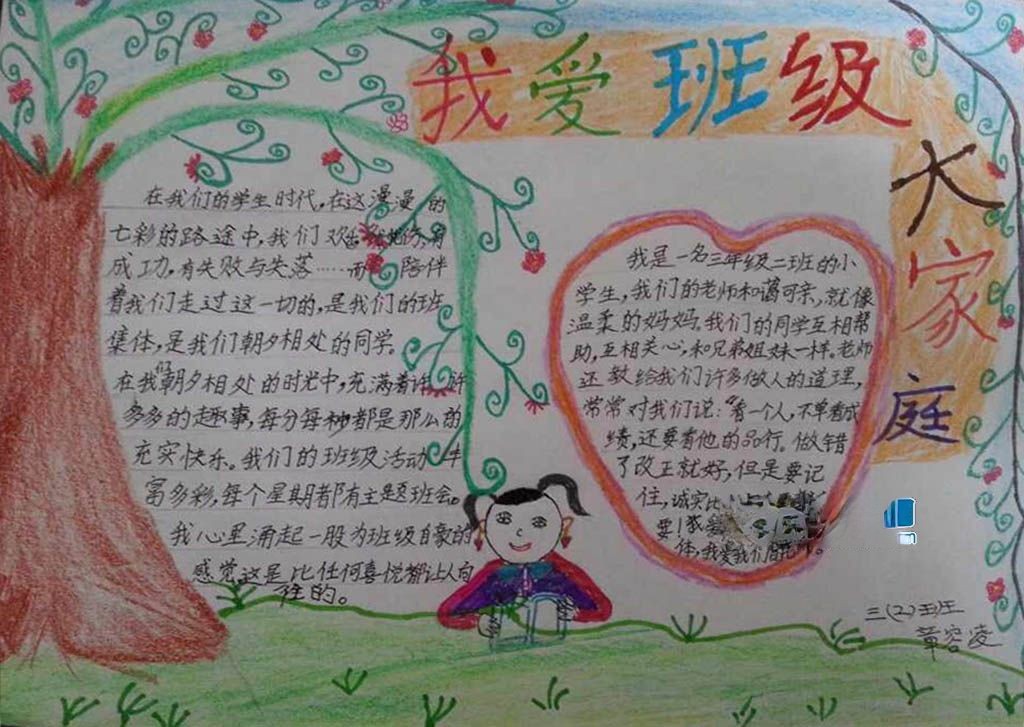 我爱班级
大家庭
在我们的学生时代,在这漫漫的
七彩的路途中,我们欢
成功,有失败与失落……而 陪伴
着我们走过这一切的,是我们的班
集体,是我们朝夕相处的同学。
在我们朝夕相处的时光中,充满着许许
多多的趣事,每分每秒都是那么的
充实快乐。我们的班级活动丰
富多彩,每个星期都有主题班会。
我心里涌起一股为班级自豪的
感觉这是比任何喜悦都让人向
往的。
我是一名三年级二班的小
学生,我们的老师和蔼可亲,就像
温柔的妈妈。我们的同学互相帮
助,互相关心,和兄弟姐妹一样。老师
还教给我们许多做人的道理,
常常对我们说:“看一个人,不单看成
绩,还要看他的品行。做错
了改正就好,但是要记
住,诚实比
要!我爱
体,我爱我们
三(2)班
章容凌